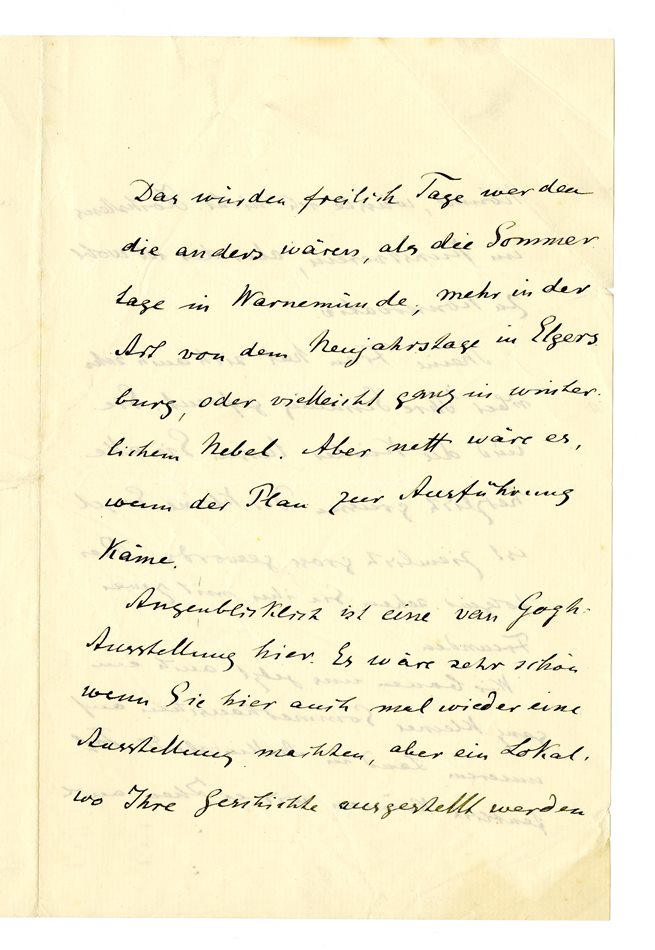 Das würden freilich Tage werden
die anders wären, als die Sommer
tage in Warnemünde, mehr in der
Art von dem Neujahrstage in Elgers
burg, oder vielleicht ganz in winter-
lichem Nebel. Aber nett wäre es,
wenn der Plan zur Ausführung
käme.
Augenblicklich ist eine van Gogh-
Ausstellung hier. Es wäre sehr schön
wenn Sie hier auch mal wieder eine
Ausstellung machten, aber ein Lokal,
wo Ihre Geschichte ausgestellt werden